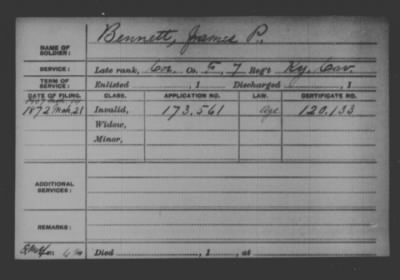 NAME OF SOLDIER: Bennett, James P.
SERVICE: Late rank, Cor. Co. F, 7 Reg't Ky. Cav.
TERM OF SERVICE: Enlisted , 1 Discharged , 1
DATE OF FILING. CLASS. APPLICATION NO. LAW. CERTIFICATE NO.
1872 Mch 21 Invalid, 173.561 120.133
Widow,
Minor,
ADDITIONAL SERVICES:
REMARKS:
Died , 1 , at